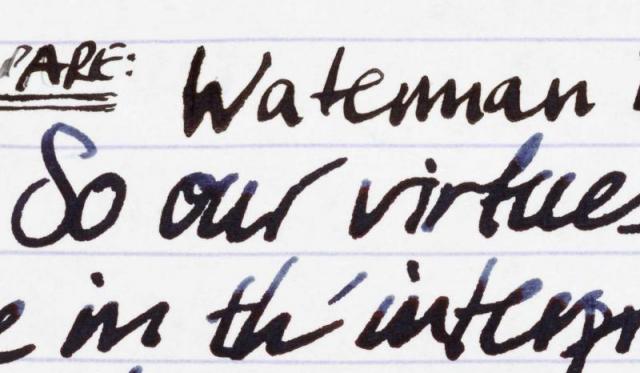 PARE: Waterman
So our virtues
in th' interpr